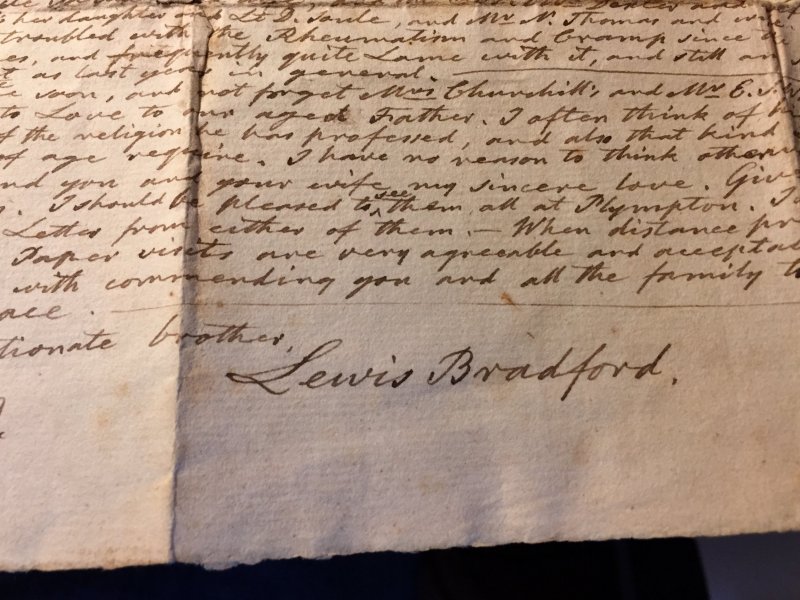 her daughter and Lt D. Soule, and Mr N. Thomas and wife
troubled with the Rheumatism and Cramp since
es, and frequently quite Lame with it, and still am
t as last year in general.
e soon, and not forget Mrs Churchill's, and Mr E. S. W
to Love to our aged Father. I often think of h
of the religion he has professed, and also that kind
of age require. I have no reason to think otherw
nd you and your wife my sincere love. Giv
I should be pleased to see them all at Plympton.
Letter from either of them. — When distance pr
Paper visits are very agreeable and acceptab
with commending you and all the family to
ace.
tionate brother,
Lewis Bradford.